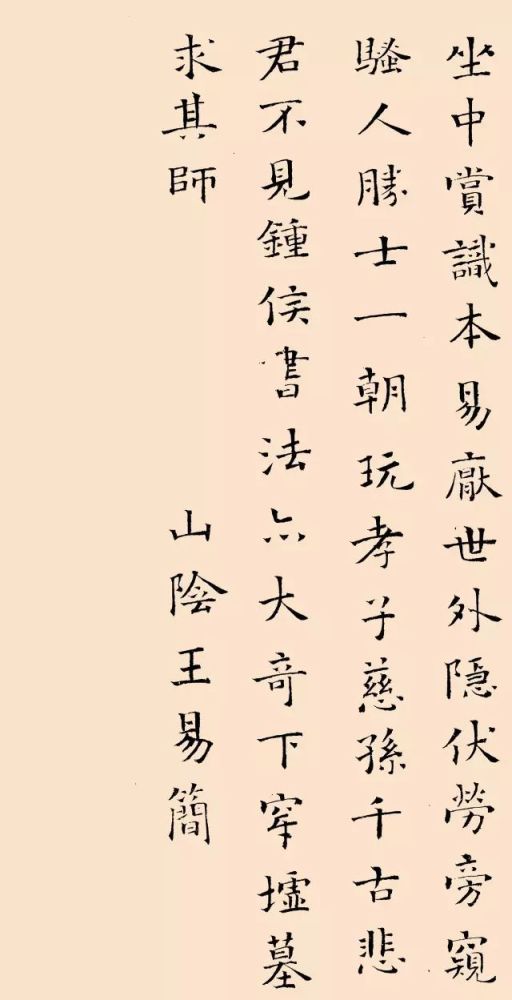 坐中賞識本易厭世外隱伏勞旁窺
騷人勝士一朝玩孝子慈孫千古悲
君不見鍾侯書法亦大奇下穿墟墓
求其師
山陰王易簡